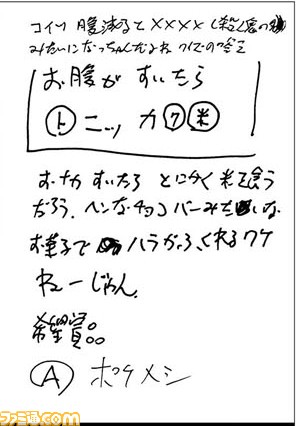 コイツ 腹減ると××××(殺人鬼の
みたいになっちゃんだよね っての答え
お腹が すいたら
トニッカク米
おナカ すいたら とにかく 米を食う
だろう、ヘンなチョコバーみたいな
お菓子で ハラがふくれるワケ
ねーじゃん。
希望賞
A ボケメシ
ファミ通.com